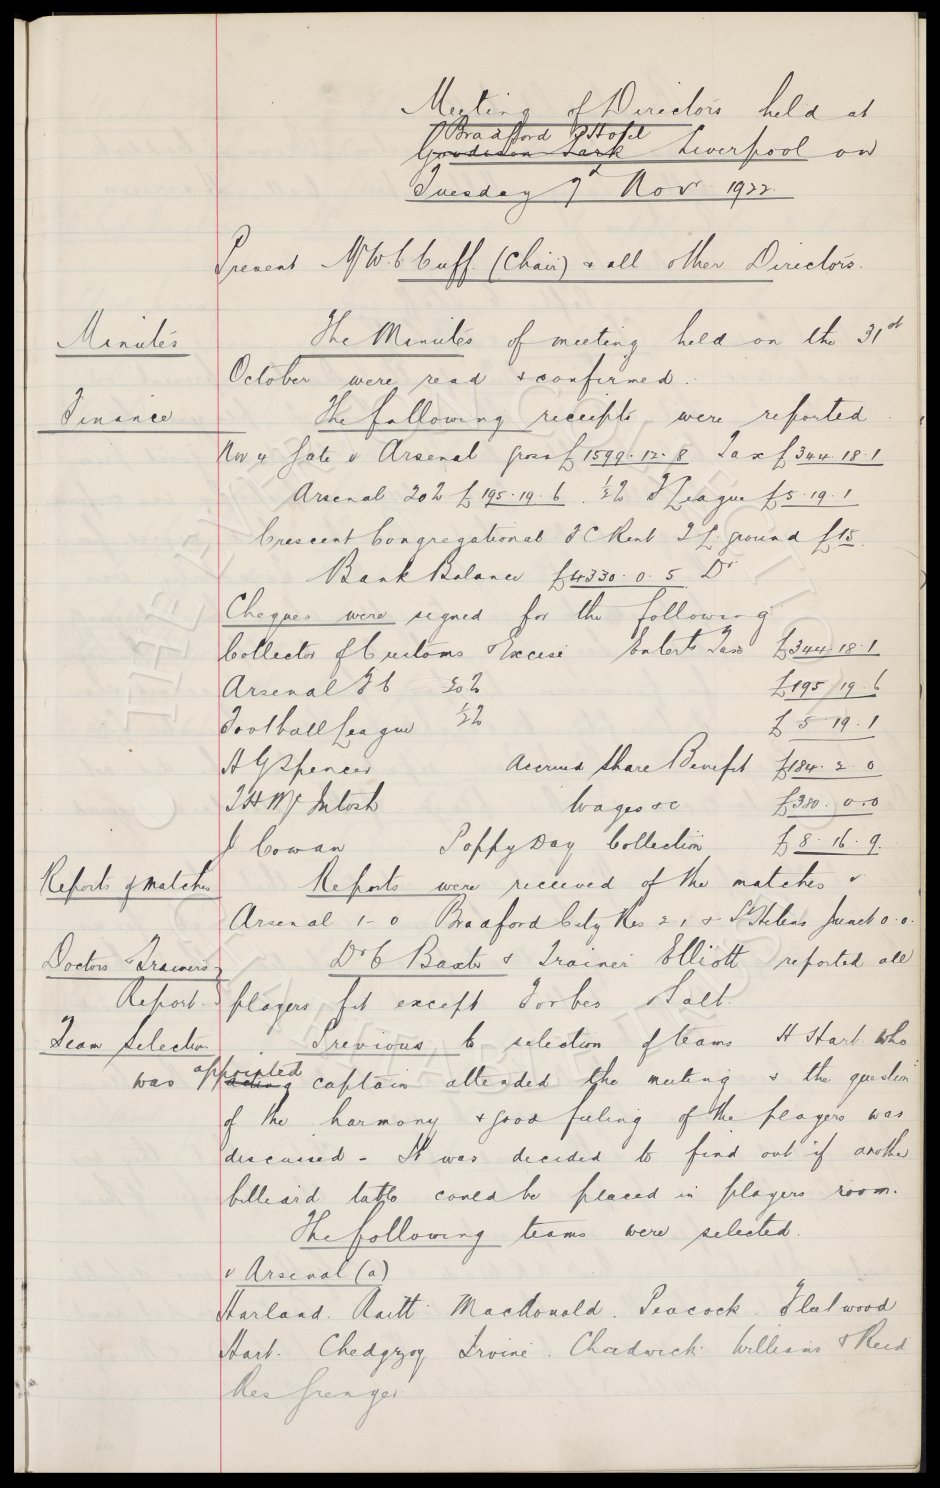 Meeting of Directors held at
Bradford Hotel
Goodison Park Liverpool on
Tuesday 7th Nov 1922.
Present Mr W. C. Cuff. (Chair) & all other Directors.
Minutes The Minutes of meeting held on the 31st
October were read & confirmed.
Finance The following receipts were reported
Nov 4 Gate v Arsenal gross £1599.12.8 Tax £344.18.1
Arsenal 20% £195.19.6. ½% F League £5.19.1
Crescent Congregational F C Rent ground £15.
Bank Balance £4330.0.5 Dr
Cheques were signed for the following
Collector of Customs & Excise Entert Tax £344.18.1
Arsenal F C 20% £195.19.6
Football League ½% £5.19.1
H G Spencer Accrued Share Benefit £184.2.0
T H McIntosh Wages &c £380.0.0
J Cowan Poppy Day Collection £8.16.9.
Reports of matches Reports were received of the matches v
Arsenal 1-0 Bradford City Res 2.1 & St Helens Junct 0.0.
Doctors & Trainers Dr C Baxter & Trainer Elliott reported all
Report. players fit except Forbes Salt.
Team Selection Previous to selection of teams H Hart who
was appointed
acting captain attended the meeting & the question
of the harmony & good feeling of the players was
discussed - It was decided to find out if another
billiard table could be placed in players room.
The following teams were selected.
v Arsenal (a)
Harland. Raitt MacDonald. Peacock Fleetwood
Hart. Chedgzoy Irvine. Chadwick Williams & Reid
Res Grenyer.
THE EVERTON COLLECTION